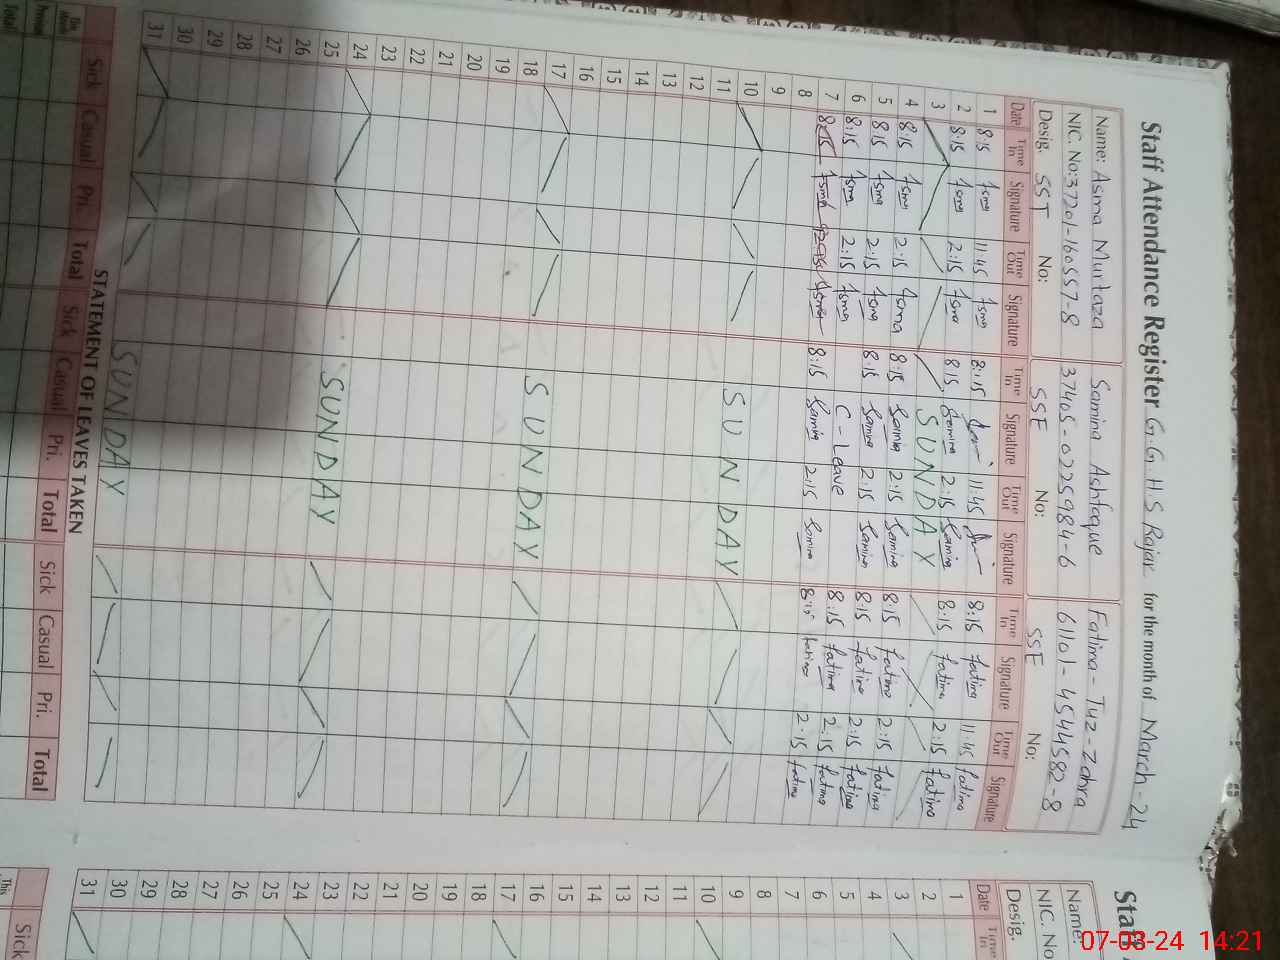 Staff Attendance Register G.G.H.S Rajar for the month of March-24
Name: Asma Murtaza Samina Ashfaque Fatima-Tuz-Zahra
NIC. No:37201-160557-8 37405-0225984-6 61101-4544582-8
Desig. SST No: SSE No: SSE No:
Date Time In Signature Time Out Signature Time In Signature Time Out Signature Time In Signature Time Out Signature
1 8:15 Asma 11:45 Asma 8:15 11:45 8:15 fatima 11:45 fatima
2 8:15 Asma 2:15 Asma 8:15 Samina 2:15 Samina 8:15 fatima 2:15 fatima
3 SUNDAY
4 8:15 Asma 2:15 Asma 8:15 Samina 2:15 Samina 8:15 fatima 2:15 fatima
5 8:15 Asma 2:15 Asma 8:15 Samina 2:15 Samina 8:15 fatima 2:15 fatima
6 8:15 Asma 2:15 Asma C-Leave 8:15 fatima 2:15 fatima
7 8:15 Asma Asma 8:15 Samina 2:15 Samina 8:15 fatima 2:15 fatima
8
9
10 SUNDAY
11
12
13
14
15
16
17 SUNDAY
18
19
20
21
22
23
24 SUNDAY
25
26
27
28
29
30
31 SUNDAY
STATEMENT OF LEAVES TAKEN
Sick Casual Pri. Total Sick Casual Pri. Total Sick Casual Pri. Total
Previous
Total
Staff
Name:
NIC. No
Desig.
Date Time In
1
2
3
4
5
6
7
8
9
10
11
12
13
14
15
16
17
18
19
20
21
22
23
24
25
26
27
28
29
30
31
Sick
This
07-03-24 14:21